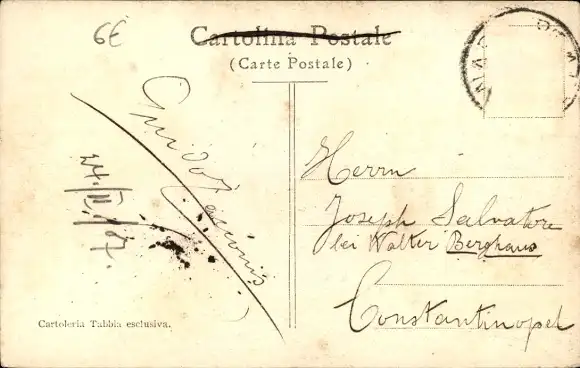 6€
Cartolina Postale
(Carte Postale)
Guido
Herrn
Joseph Salvatore
bei Walter Berghaus
Constantinopel
Cartoleria Tabbia esclusiva.